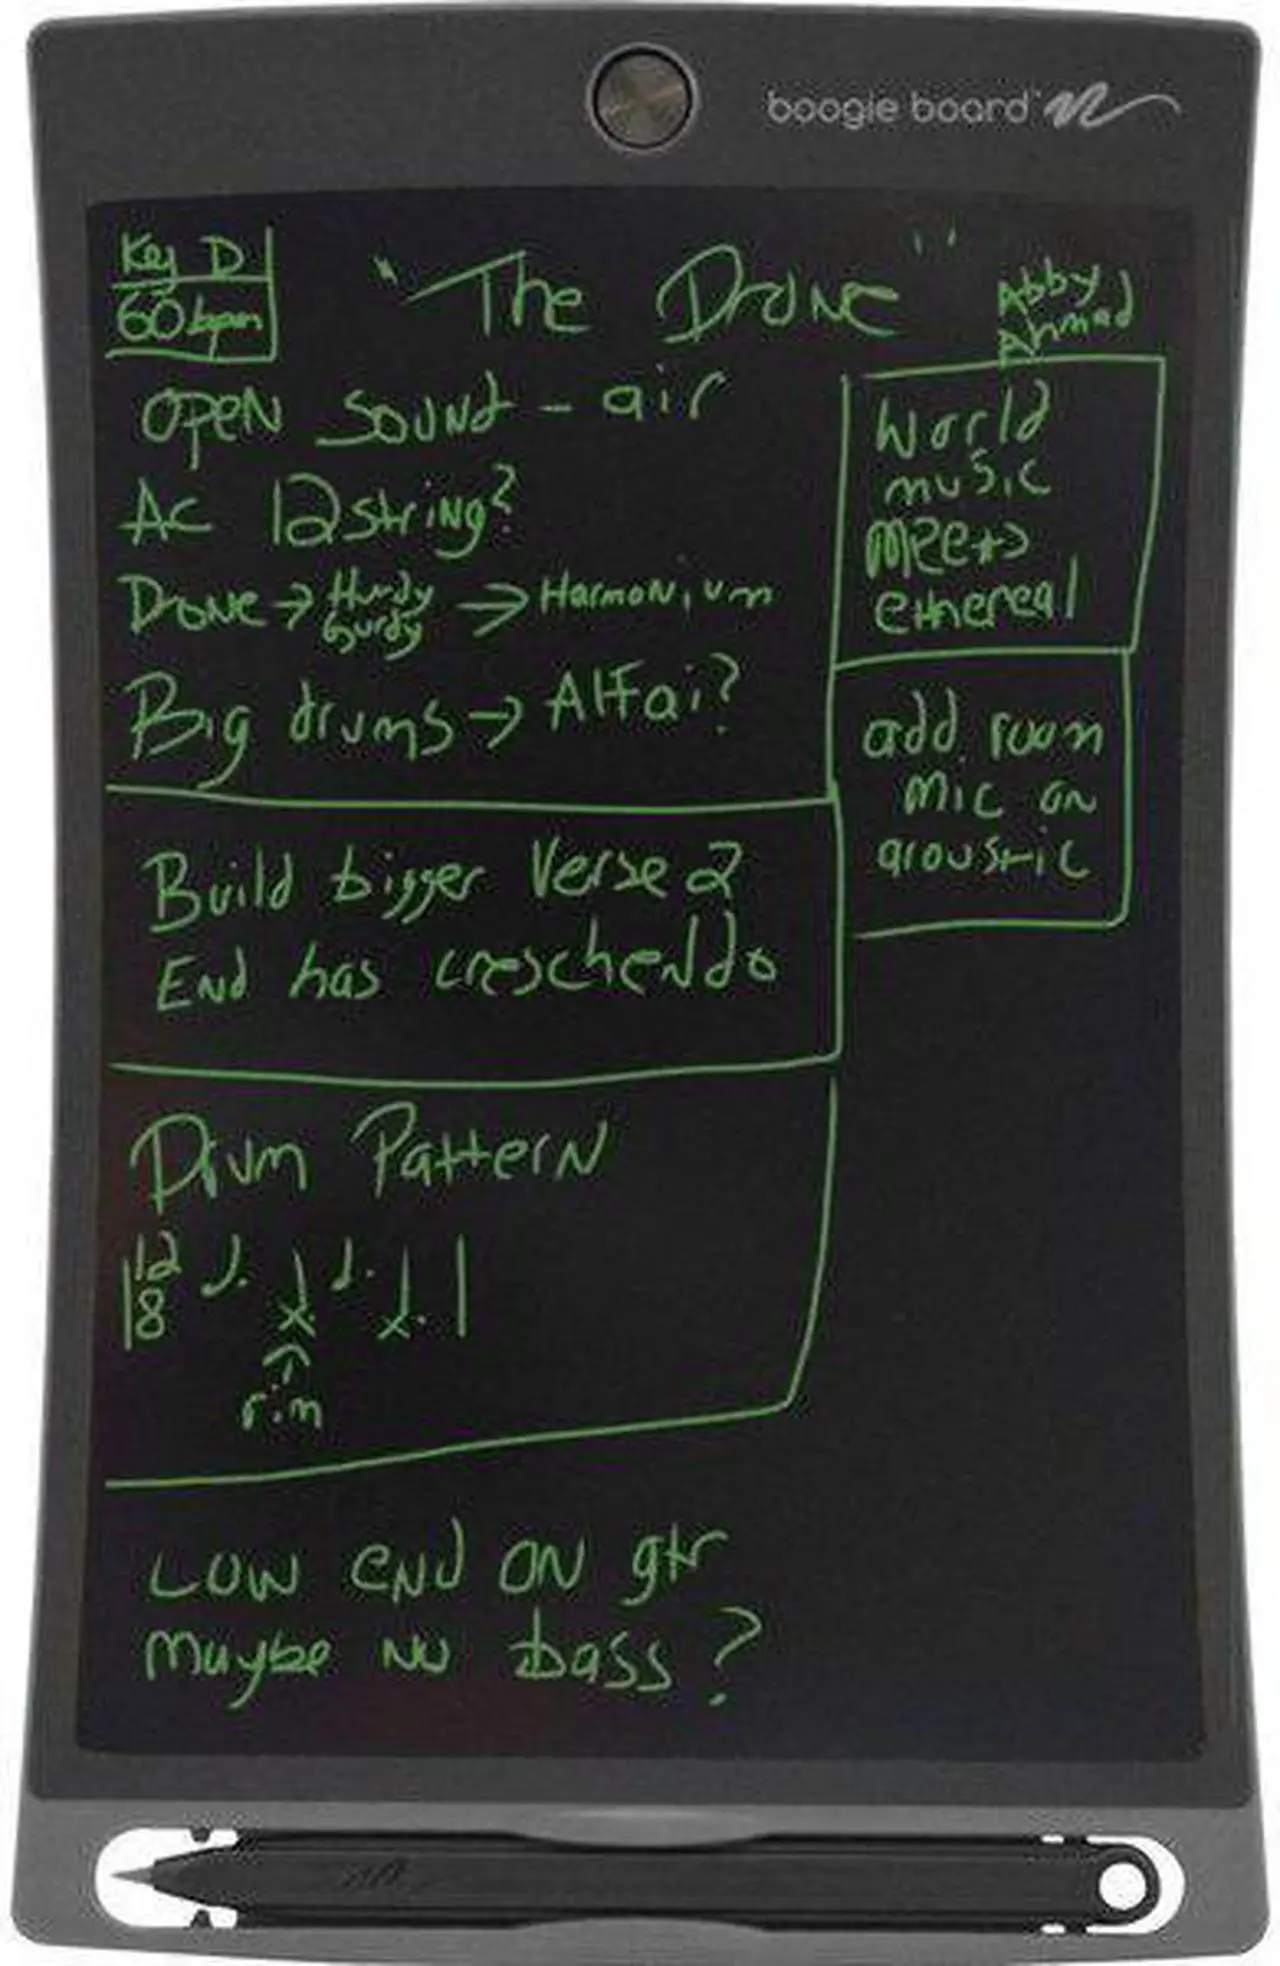 boogie board
Key D
60 bpm
"The Drone"
Abby
Ahmad
OPEN Sound - air
AC 12 string?
Drone → Hurdy gurdy → Harmonium
Big drums → Alfai?
World
music
meets
ethereal
add room
mic on
acoustic
Build bigger Verse 2
End has creschendo
Drum Pattern
12
8
rim
Low end on gtr
Maybe no bass?